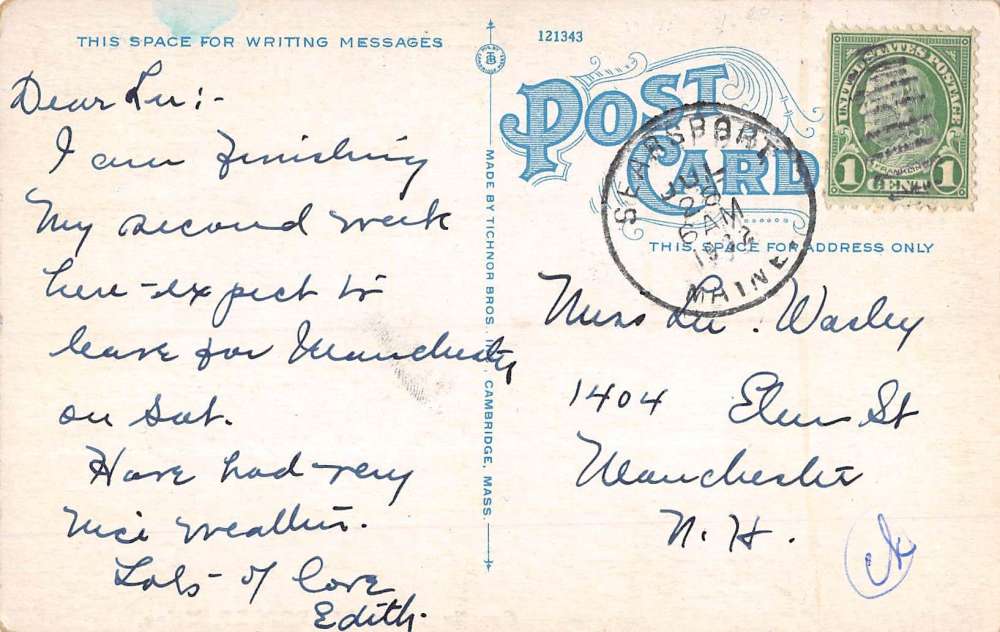 THIS SPACE FOR WRITING MESSAGES
Dear Lu:-
I am finishing
my second week
here - expect to
leave for Manchester
on Sat.
Have had very
nice weather.
Lots of love
Edith.
MADE BY TICHNOR BROS. INC., CAMBRIDGE, MASS.
121343
POST
CARD
THIS SPACE FOR ADDRESS ONLY
SEARSPORT
JUL
28
6 AM
MAINE.
UNITED STATES POSTAGE
FRANKLIN
1 CENT 1
Miss Lu. Wasley
1404 Elm St
Manchester
N.H.